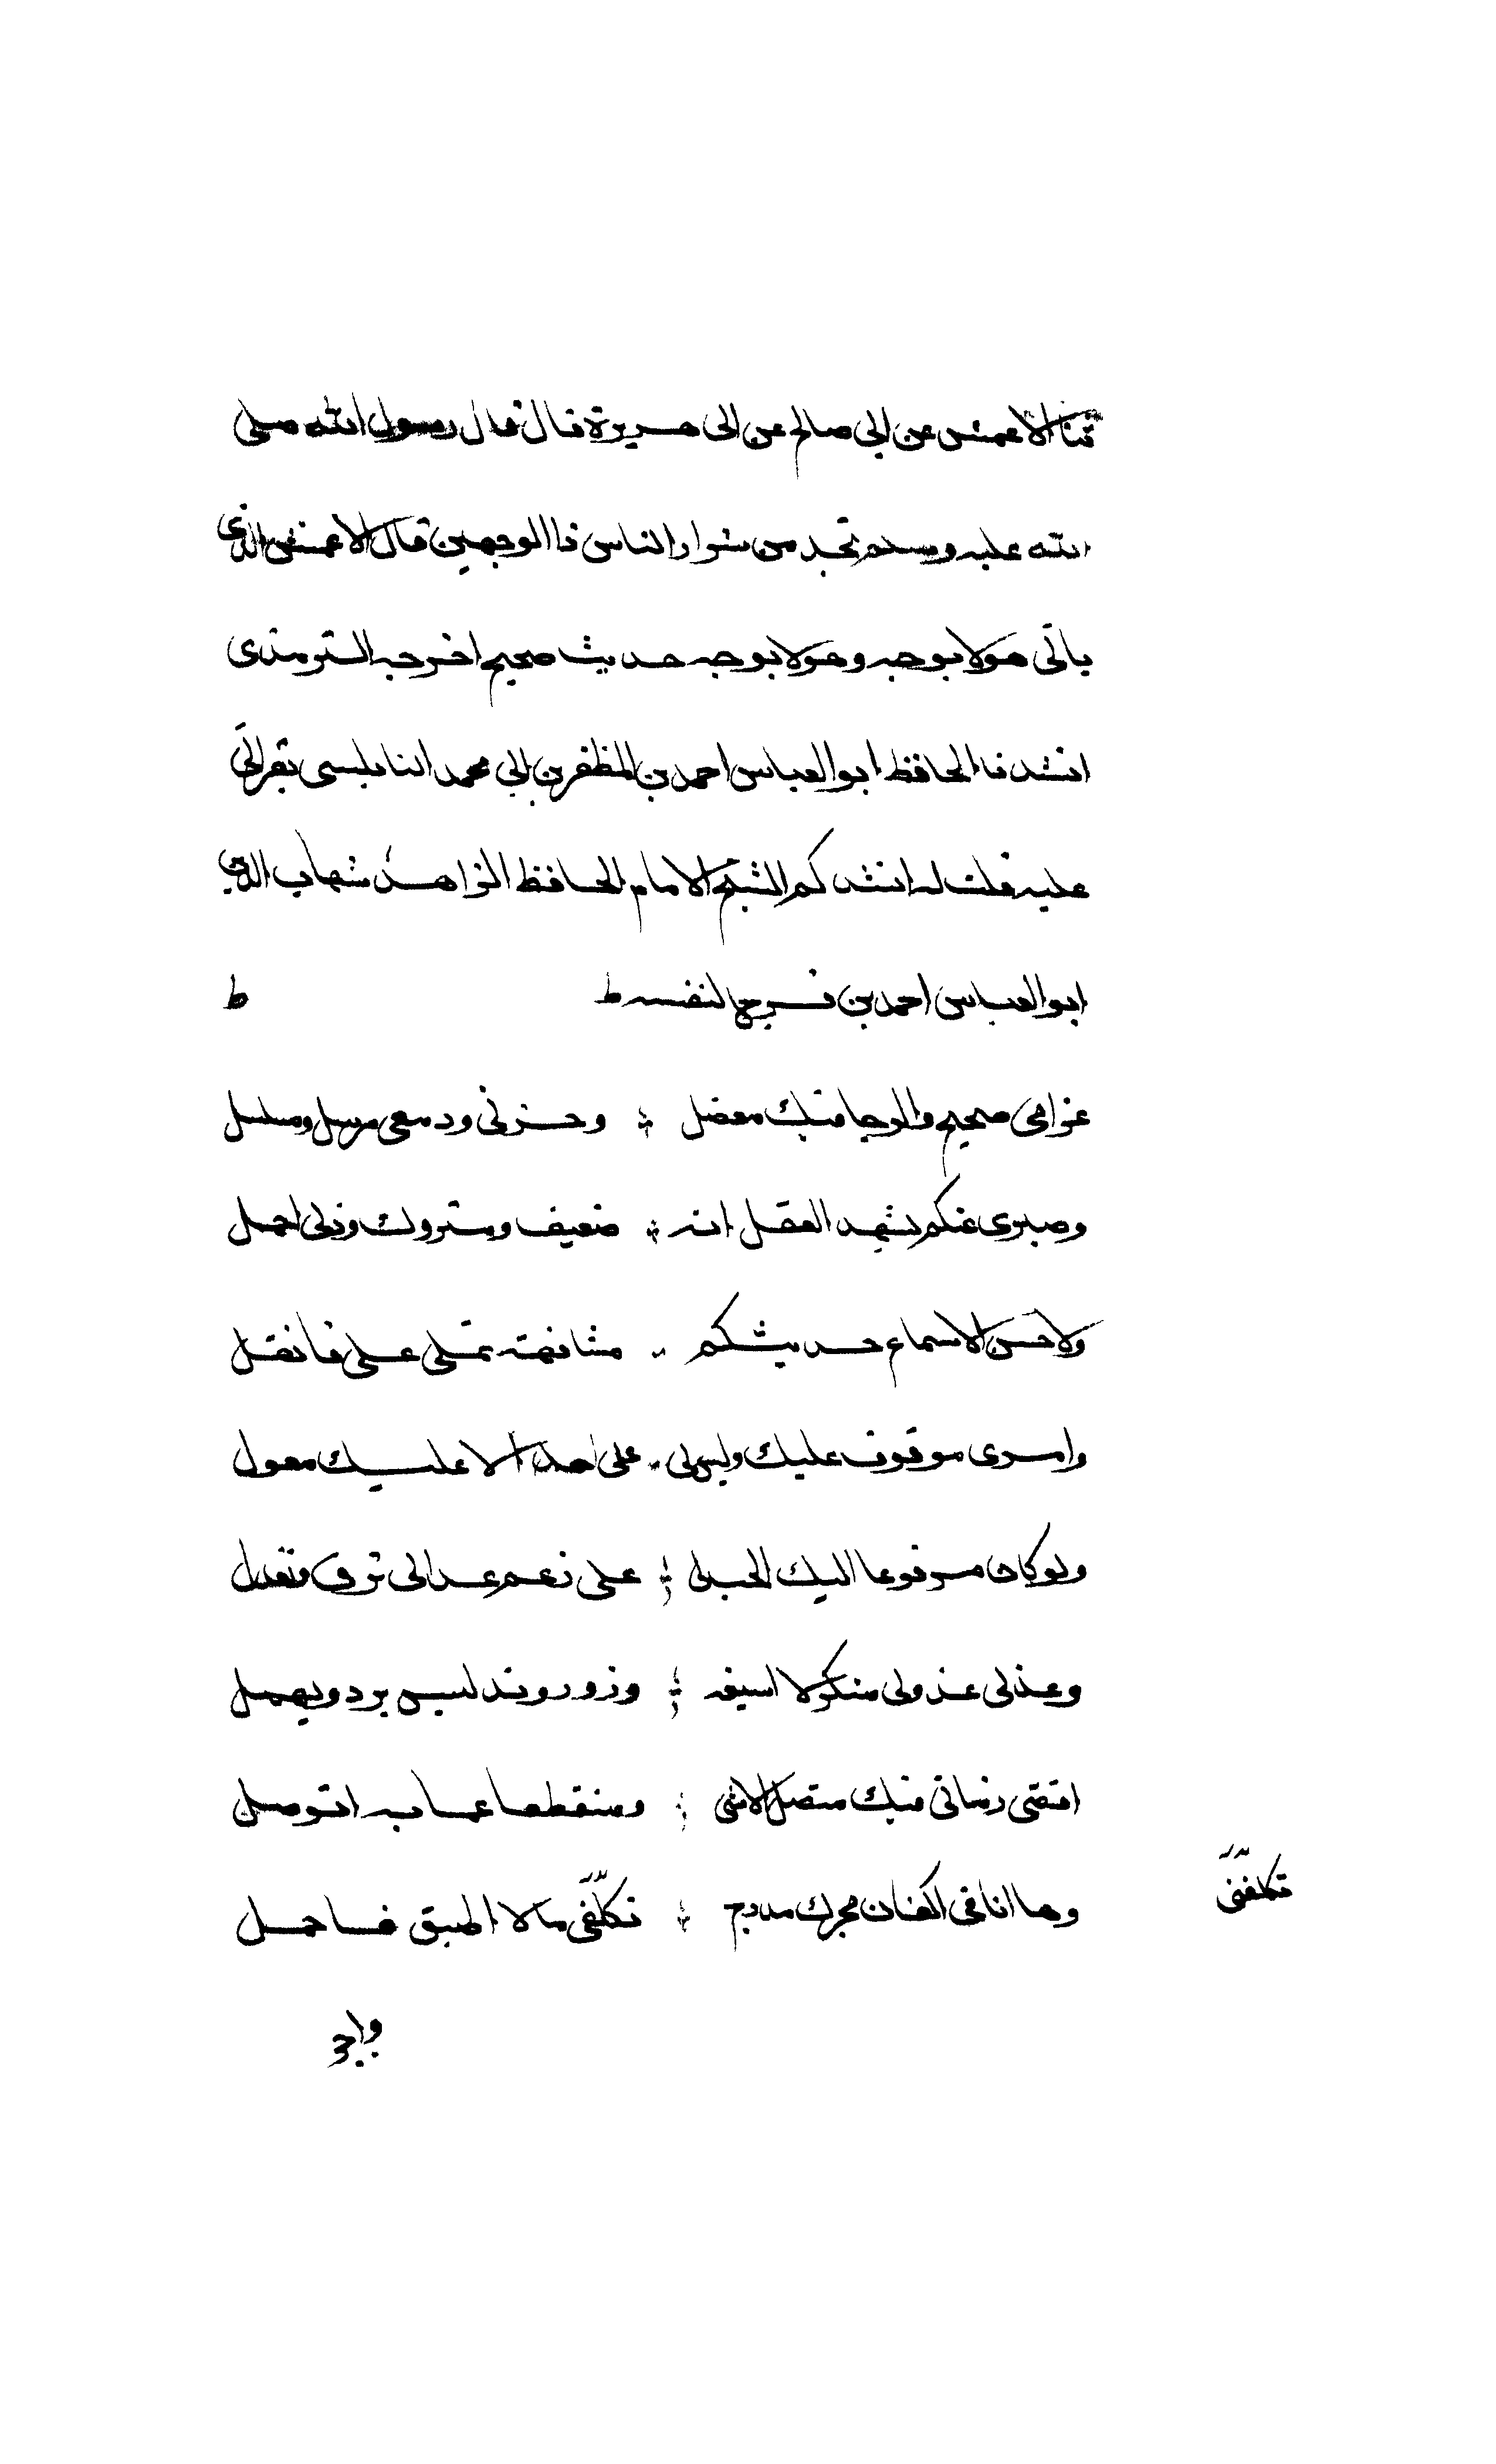 ثنا الاعمش عن ابى صالح عن ابى هريرة قال قال رسول الله صلى
الله عليه وسلم تجد من شرار الناس ذا الوجهين قال الاعمش الذى
ياتى هولا بوجه وهولا بوجه حديث صحيح اخرجه الترمذى
انشدنا الحافظ ابو العباس احمد بن المظفر بن ابى محمد النابلسى بقراتى
عليه قلت له انشدكم الشيخ الامام الحافظ الزاهد شهاب الدين
ابو العباس احمد بن فرج لنفسه ط ط
غرامى صحيح والرجا فيك معضل وحزنى ودمعى مرسل ومسلسل
وصبرى عنكم يشهد العقل انه ضعيف ومتروك وذلى اجمل
ولا حسن الا سماع حديثكم مشافهة تملى على فانقل
وامرى موقوف عليك وليس لى على احد الا عليك معول
ولو كان مرفوعا اليك لحبلى على زعم عدالى ترق وتعدل
وعذلى عذولى منكر لا اسيغه وزور وند ليس يرد ويهمل
اقضى زمانى فيك متصل الاسى ومنقطعا عما به اتوصل
وها انا فى اكفان هجرك مدرج تكلفنى ما لا اطيق فاحمل
تكلفنى
واج